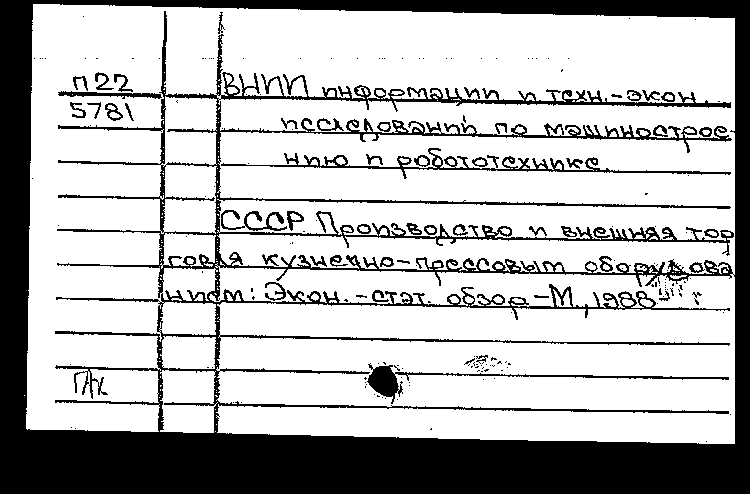 П22
5781
ВНИИ информации и техн.-экон.
исследований по машинострое-
нию и робототехнике.
СССР Производство и внешняя тор
говля кузнечно-прессовым оборудова
нием: Экон.-стат. обзор.-М., 1988